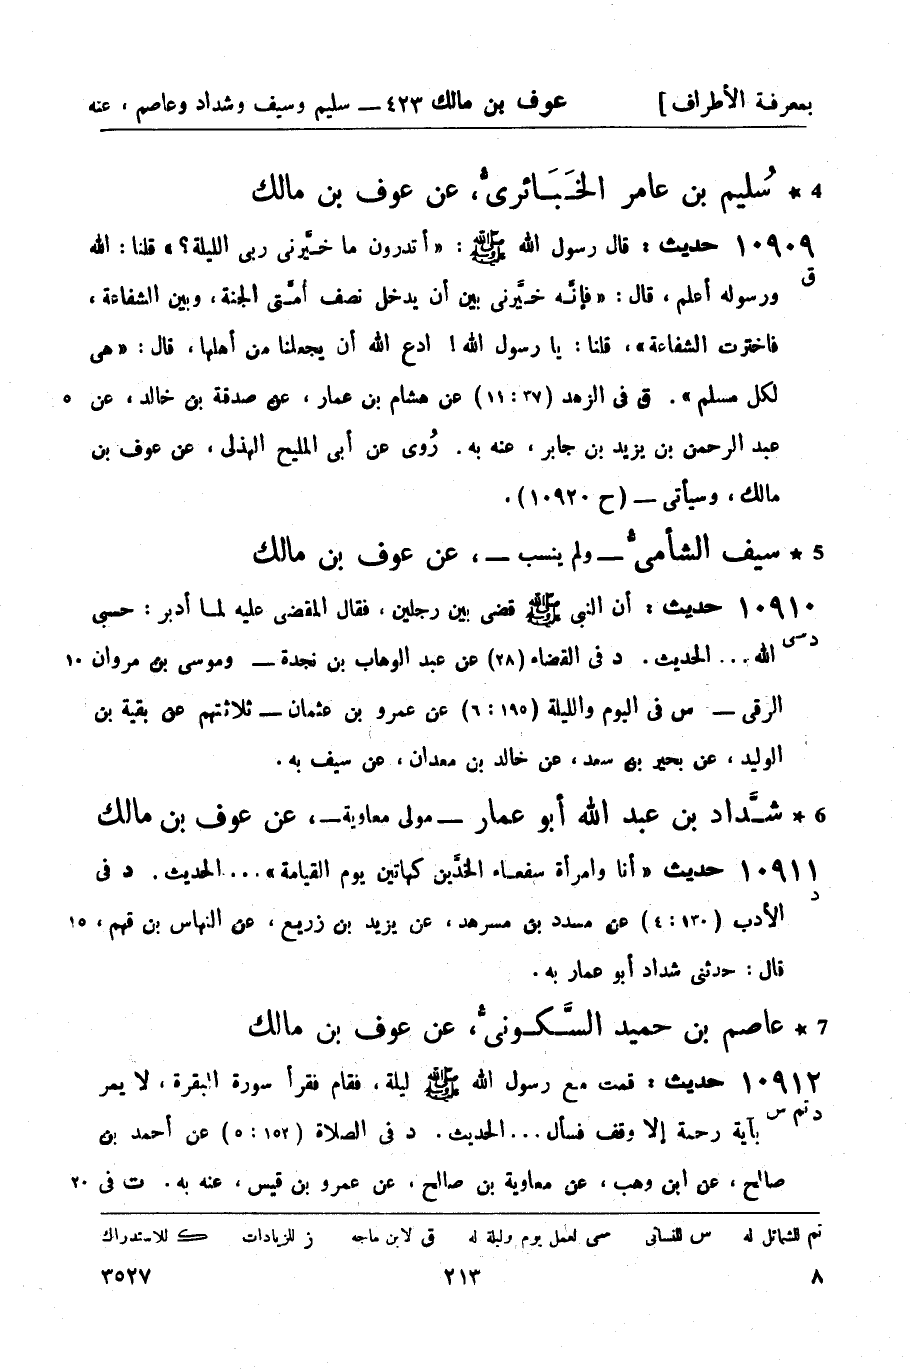 بمعرفة الأطراف] عوف بن مالك ٤٢٣ — سليم وسيف وشداد وعاصم ، عنه
4 * سُليم بن عامر الخَبَائرىُّ، عن عوف بن مالك
١٠٩٠٩ حديث : قال رسول الله ﷺ : «أتدرون ما خيَّرنى ربى الليلة؟» قلنا : الله
ق
ورسوله أعلم ، قال : «فإنَّه خيَّرنى بين أن يدخل نصف أمَّتى الجنة ، وبين الشفاعة ،
فاخترت الشفاعة» ، قلنا : يا رسول الله ! ادع الله أن يجعلنا من أهلها ، قال : «هى
لكل مسلم» . ق فى الزهد (٣٧ : ١١) عن هشام بن عمار ، عن صدقة بن خالد ، عن ٥
عبد الرحمن بن يزيد بن جابر ، عنه به . رُوى عن أبى المليح الهذلى ، عن عوف بن
مالك ، وسيأتى — (ح ١٠٩٢٠) .
5 * سيف الشأمىُّ — ولم ينسب — ، عن عوف بن مالك
١٠٩١٠ حديث : أن النبى ﷺ قضى بين رجلين ، فقال المقضى عليه لما أدبر : حسبى
د سى
الله ... الحديث . د فى القضاء (٢٨) عن عبد الوهاب بن نجدة — وموسى بن مروان ١٠
الرقى — س فى اليوم والليلة (١٩٥ : ٦) عن عمرو بن عثمان — ثلاثتهم عن بقية بن
الوليد ، عن بحير بن سعد ، عن خالد بن معدان ، عن سيف به .
6 * شدَّاد بن عبد الله أبو عمار — مولى معاوية — ، عن عوف بن مالك
١٠٩١١ حديث «أنا وامرأة سفعاء الخدَّين كهاتين يوم القيامة» ... الحديث . د فى
د
الأدب (١٣٠ : ٤) عن مسدد بن مسرهد ، عن يزيد بن زريع ، عن النهاس بن قهم ، ١٥
قال : حدثنى شداد أبو عمار به .
7 * عاصم بن حميد السَّكونىُّ، عن عوف بن مالك
١٠٩١٢ حديث : قمت مع رسول الله ﷺ ليلة ، فقام فقرأ سورة البقرة ، لا يمر
د تم س
بآية رحمة إلا وقف فسأل ... الحديث . د فى الصلاة (١٥٢ : ٥) عن أحمد بن
صالح ، عن ابن وهب ، عن معاوية بن صالح ، عن عمرو بن قيس ، عنه به . ت فى ٢٠
تم للشمائل له س للنسائى سى لعمل يوم وليلة له ق لابن ماجه ز للزيادات ك للاستدراك
٨ ٢١٣ ٣٥٢٧